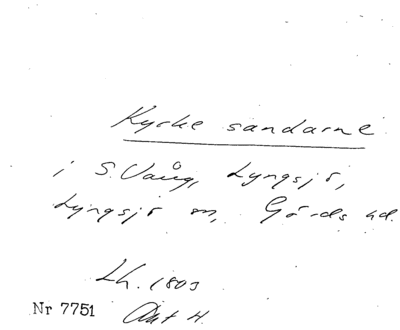 Kyrke sandarne
i S. Vång, Lyngsjö,
Lyngsjö sn, Gärds hd.
Lh. 1803
Nr 7751 Akt H.